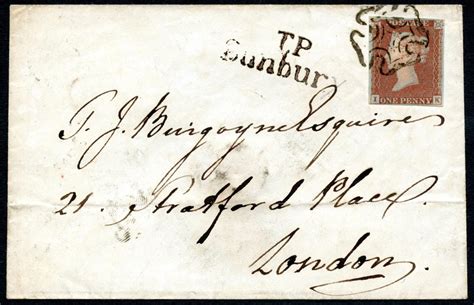 T.P
Sunbury
ONE PENNY K
T. J. Burgoyne Esquire
21. Stratford Place.
London.